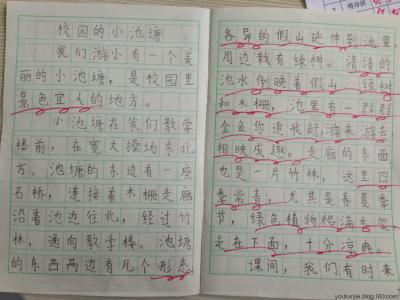 校园的小池塘
我们游小有一个美
丽的小池塘，是校园里
景色宜人的地方。
小池塘在我们教学
楼前，在宽大操场东北
方。池塘的东边有一座
石桥，连接着木栅走廊
沿着池边往北，经过竹
林，通向教学楼。池塘
的东西两边有几个形态
各异的假山延伸到池里，
周边栽有绿树。清清的
池水倒映着假山、绿树
和木栅，池里有一群群
金鱼你追我赶，游来游去
相映成趣。走廊的东面
也是一片竹林，这里四
季常青，尤其是春夏季
节，绿色植物爬满木架
走在下面，十分凉爽。
课间，我们有时来
youtuxijie.blog.163.com